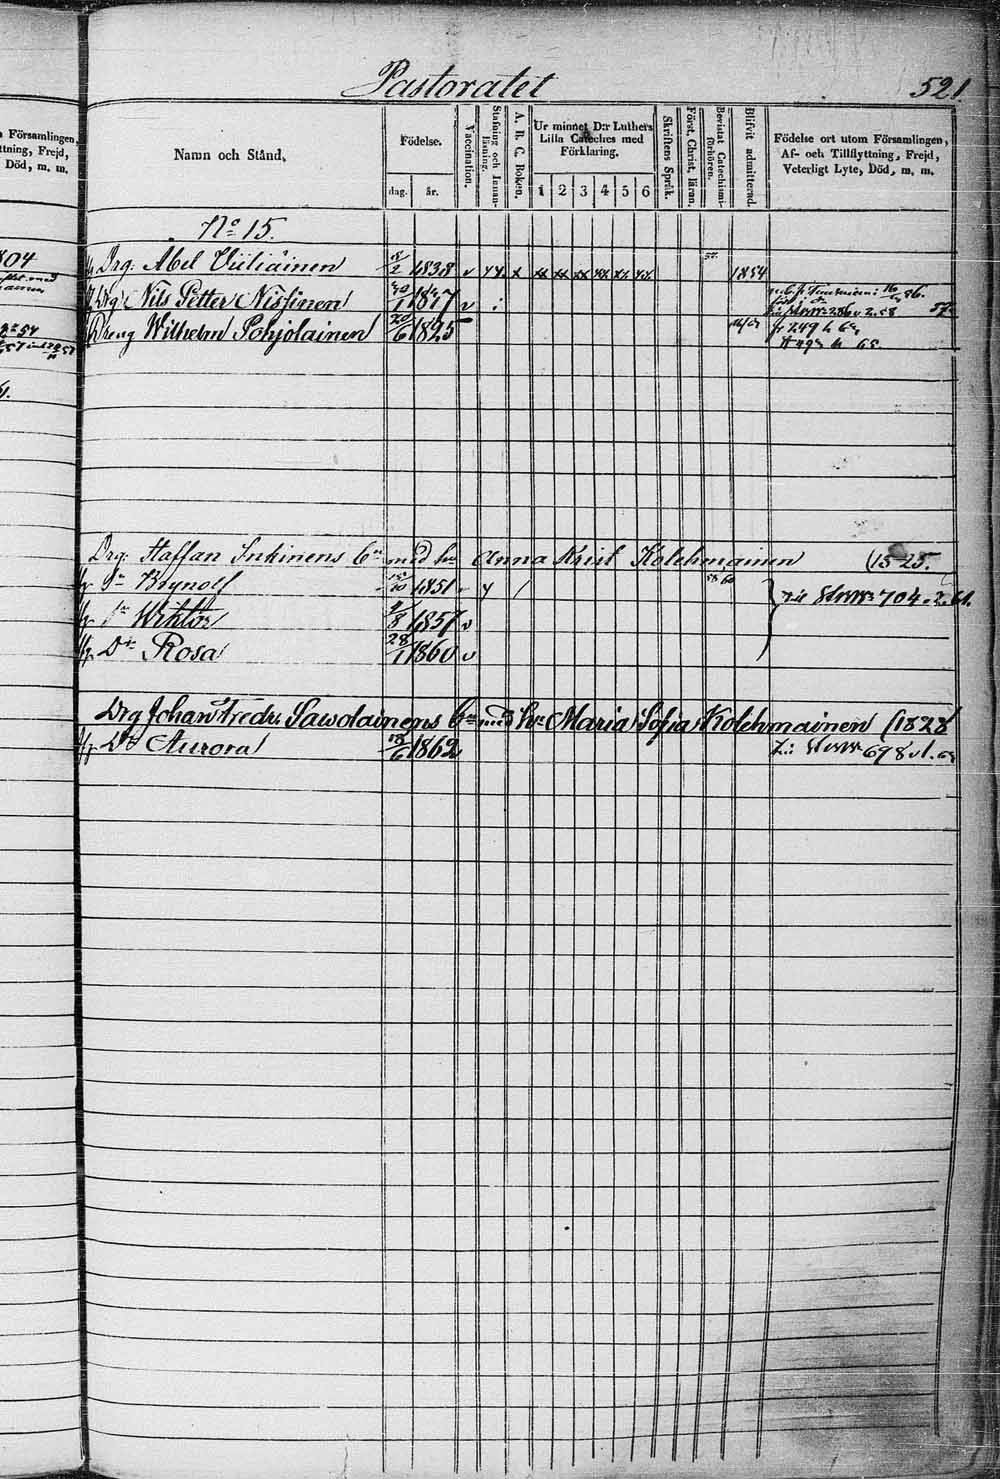 Pastoratet 521.
Församlingen,
ttning, Frejd,
Död, m. m.
Namn och Stånd.
Födelse.
dag. år.
Vaccination.
Stafning och Innan-
läsning.
A. B. C. Boken.
Ur minnet D:r Luthers
Lilla Cateches med
Förklaring.
1 2 3 4 5 6
Skriftens Språk.
Först. Christ. läran.
Bevistat Catechismi-
förhören.
Blifvit admitterad.
Födelse ort utom Församlingen,
Af- och Tillflyttning, Frejd,
Veterligt Lyte, Död, m. m.
No 15.
804
Drg: Abel Viiliäinen 18/2 1838 v x 1854
Drg: Nils Petter Nissinen 1817 v
Dreng Wilhelm Pohjolainen 20/6 1825
fr 749
Drg: Staffan Inkinens med Anna Krist Kolehmainen (1525.
Sn Brynolf 10 1851 y / 58 60
704. 2. 61.
Sn Wiktor 8 1857 v
Dr Rosa 28/1 1860 v
Drg Johan Fredr. Sawolainens med Maria Sofia Kolehmainen (1828
Dr Aurora 18/6 1862 698